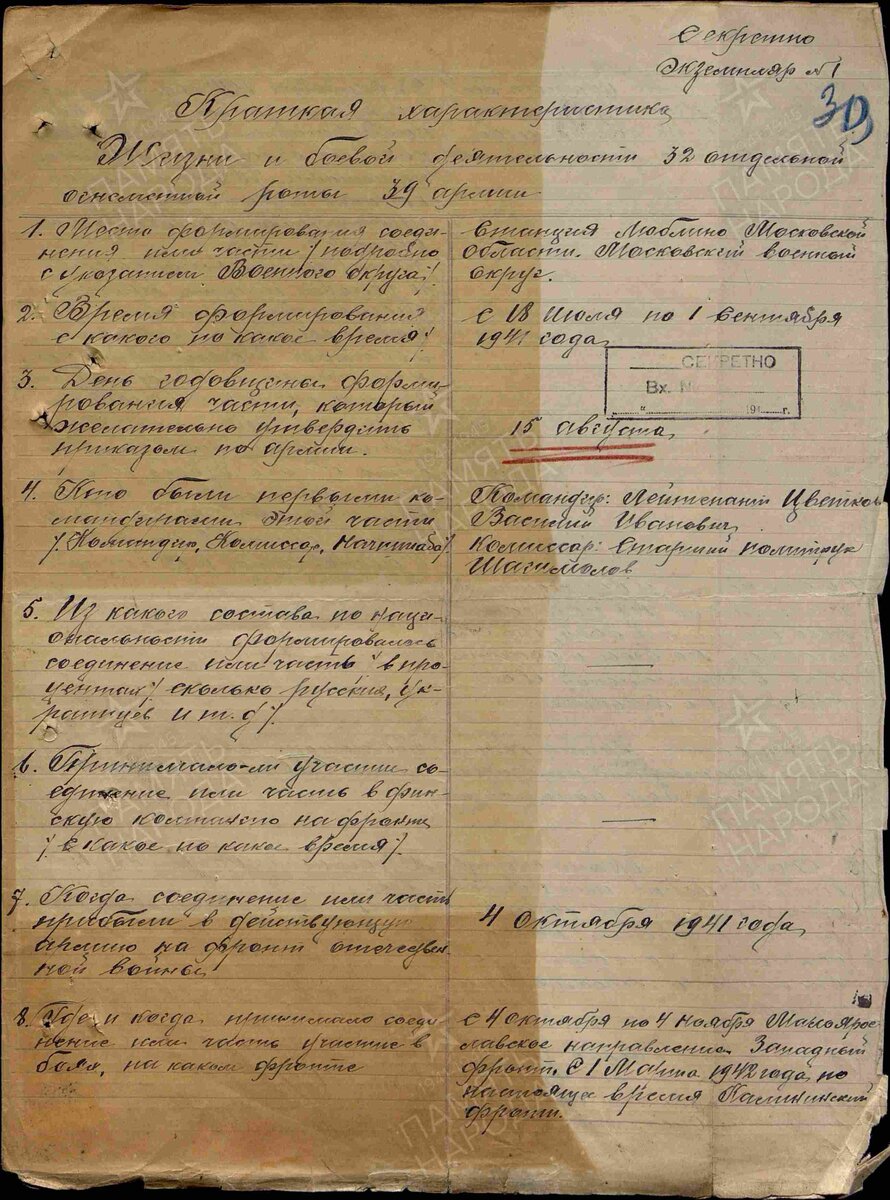 Секретно
Экземпляр №1
30
Краткая характеристика
Жизни и боевой деятельности 32 отдельной
огнеметной роты 39 армии
1. Место формирования соеди-
нения или части /подробно
с указанием Военного округа/.
Станция Люблино Московской
области. Московский военный
округ.
2. Время формирования
с какого по какое время/
с 18 Июля по 1 Сентября
1941 года
СЕКРЕТНО
Вх. №
" " 194 г.
3. День годовщины форми-
рования части, который
желательно утвердить
приказом по армии.
15 августа
4. Кто были первыми ко-
мандирами этой части
/Командир, Комиссар, Начштаба/
Командир: Лейтенант Цветков
Василий Иванович
Комиссар: Старший политрук
5. Из какого состава по наци-
ональности формировалось
соединение или часть /в про-
центах/ сколько русских, ук-
раинцев и т.д/.
—
6. Принимало-ли участие со-
единение или часть в фин-
скую компанию на фронте
/с какое по какое время/.
—
7. Когда соединение или часть
прибыли в действующую
армию на фронт отечествен-
ной войны
4 октября 1941 года
8. Где и когда принимало соеди-
нение или часть участие в
боях, на каком фронте
с 4 октября по 4 ноября Малояро-
славское направление Западный
фронт. С 1 Марта 1942 года по
настоящее время Калининский
фронт.
ПАМЯТЬ
НАРОДА